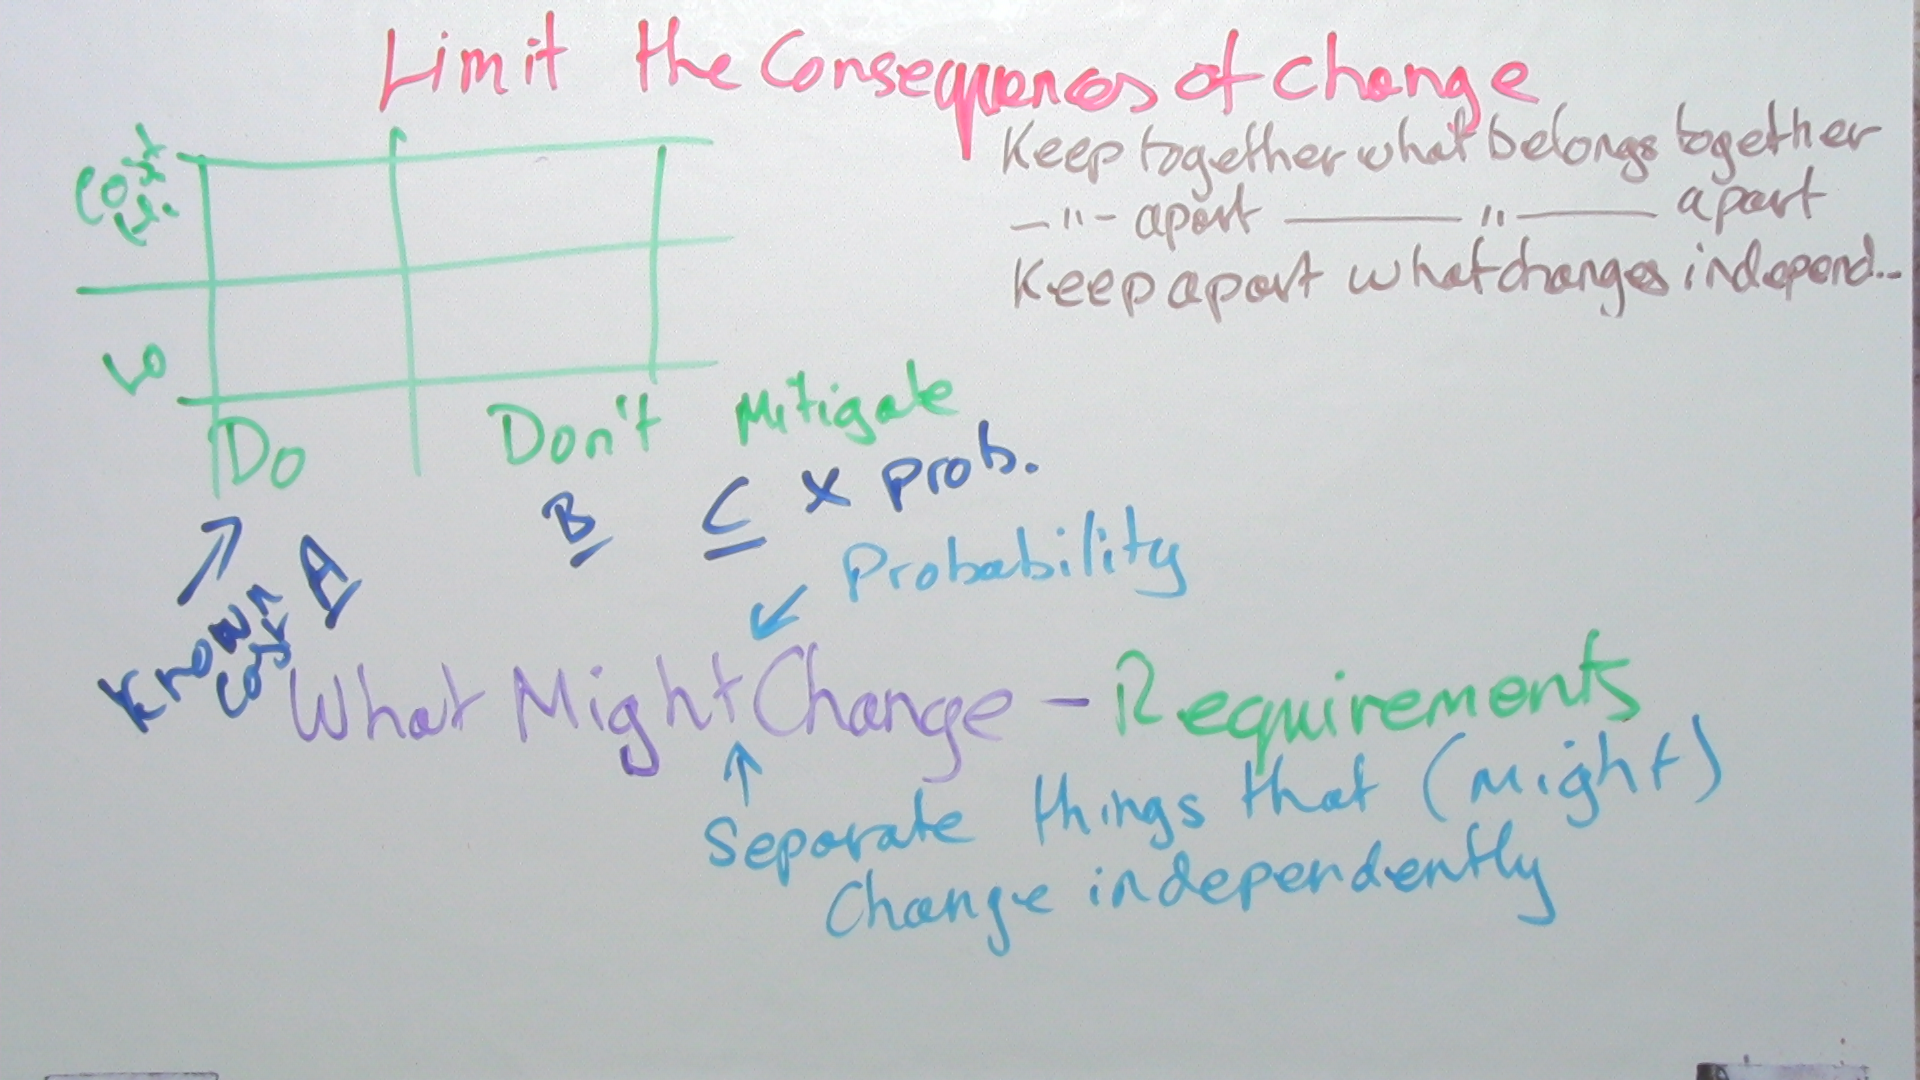 Limit the Consequences of Change
Keep together what belongs together
—"— apart ———"——— apart
Keep apart what changes independ...
Cost
Hi.
Lo
Do
Don't Mitigate
B C x prob.
A
Known
Cost
Probability
What Might Change - Requirements
Separate things that (Might)
Change independently